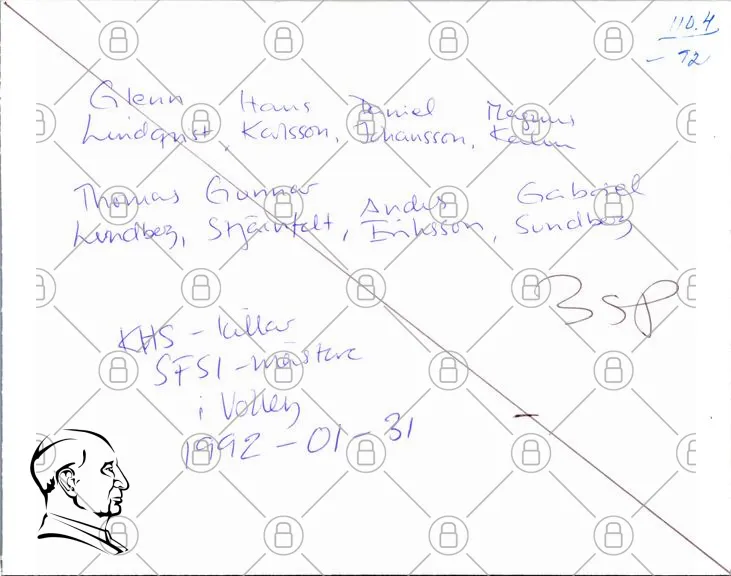 110.4
- 92
Glenn Hans Daniel Magnus
Lindqvist, Karlsson, Johansson,
Thomas Gunnar Anders Gabriel
Lundberg, Stjärnfalt, Eriksson, Sundberg
3 sp
KHS - killar
SFSI - mästare
i Volley
1992 - 01 - 31